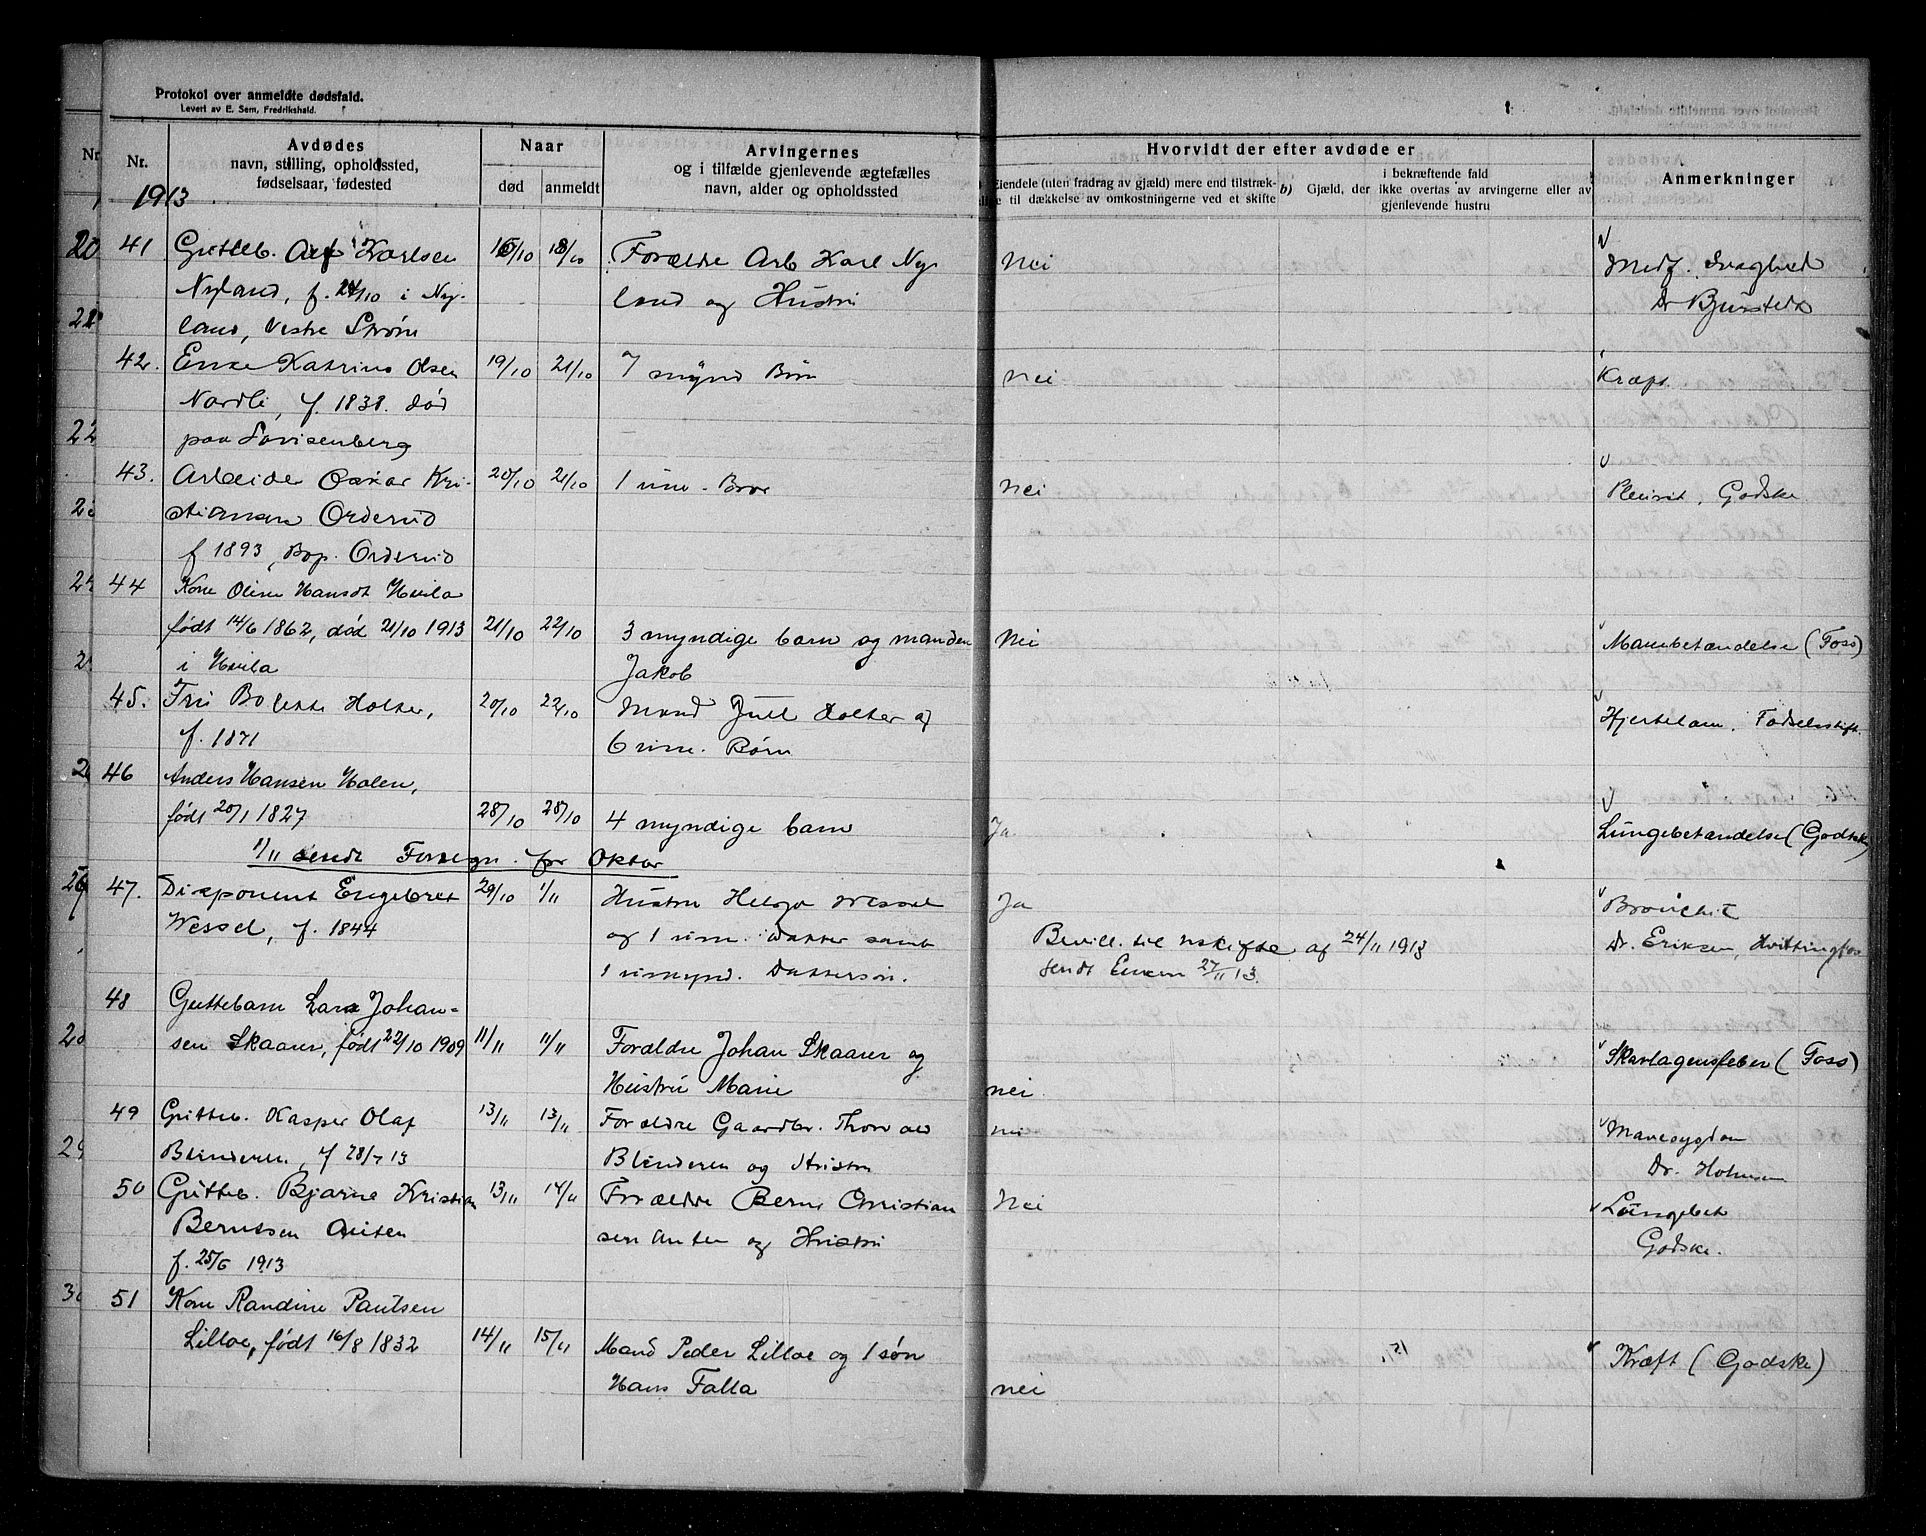 Protokol over anmeldte dødsfald.
Levert av E. Sem, Fredrikshald.
Nr.
Avdødes
navn, stilling, opholdssted,
fødselsaar, fødested
Naar
død
anmeldt
Arvingernes
og i tilfælde gjenlevende ægtefælles
navn, alder og opholdssted
Hvorvidt der efter avdøde er
Eiendele (uten fradrag av gjæld) mere end tilstræk-
til dækkelse av omkostningerne ved et skifte
b) Gjæld, der
i bekræftende fald
ikke overtas av arvingerne eller av
gjenlevende hustru
Anmerkninger
1913
41 Gutteb. Alf Karlsen 18/10 Forældre Arb Karl Ny- Nei Medf. Svaghed
Nyland, f. 14/10 i Ny- land og Hustru Dr Bjursted
land, Vestre Strøm
42. Enke Katrine Olsen 19/10 21/10 7 mynd Børn Nei Kræft.
Nordli, f. 1838. død
paa Lovisenberg
43. Arbeider Oskar Kri- 20/10 21/10 1 um. Bror Nei Pleurit. Godske.
stiansen Orderud
f 1893, Bop. Orderud
44 Kone Oline Hansdt Hvila
født 14/6 1862, død 21/10 1913 21/10 22/10 3 myndige barn og manden Nei Mavebetændelse (Foss)
i Hvila Jakob
45. Fru Bolette Holter, 20/10 22/10 Mand Juel Holter og Hjertelam. Fødselsstift.
f. 1871 6 um. Børn
46 Anders Hansen Holen,
født 20/1 1827 28/10 28/10 4 myndige barn Ja Lungebetændelse (Godske)
1/11 sendt Fortegn. for Oktbr
47. Disponent Engebret 29/10 1/11 Hustru Helga Wessel Ja Bronchit
Wessel, f. 1844 og 1 um. datter samt Bevill. til uskifte af 24/11 1913 Dr. Eriksen, Hvittingfos
1 umynd. Dattersøn. sendt Enken 27/11 13.
48 Guttebarn Lars Johan-
sen Skaarer, født 22/10 1909 11/11 11/11 Forældre Johan Skaarer og Skarlagensfeber (Foss)
Hustru Marie nei
49 Gutteb. Kasper Olaf 13/11 13/11 Forældre Gaardbr. Thorvald nei Mavesygdom
Blinderen, f 28/7 13 Blinderen og Hustru Dr. Holmsen
50 Gutteb. Bjarne Kristian 13/11 14/11 Forældre Bernt Christian Nei Lungebet
Berntsen f. sen og Hustru Godske.
f. 25/6 1913
51 Kone Randine Paulsen
Lilloe, født 16/8 1832 14/11 15/11 Mand Peder Lilloe og 1 søn Kræft (Godske)
Hans Falla nei